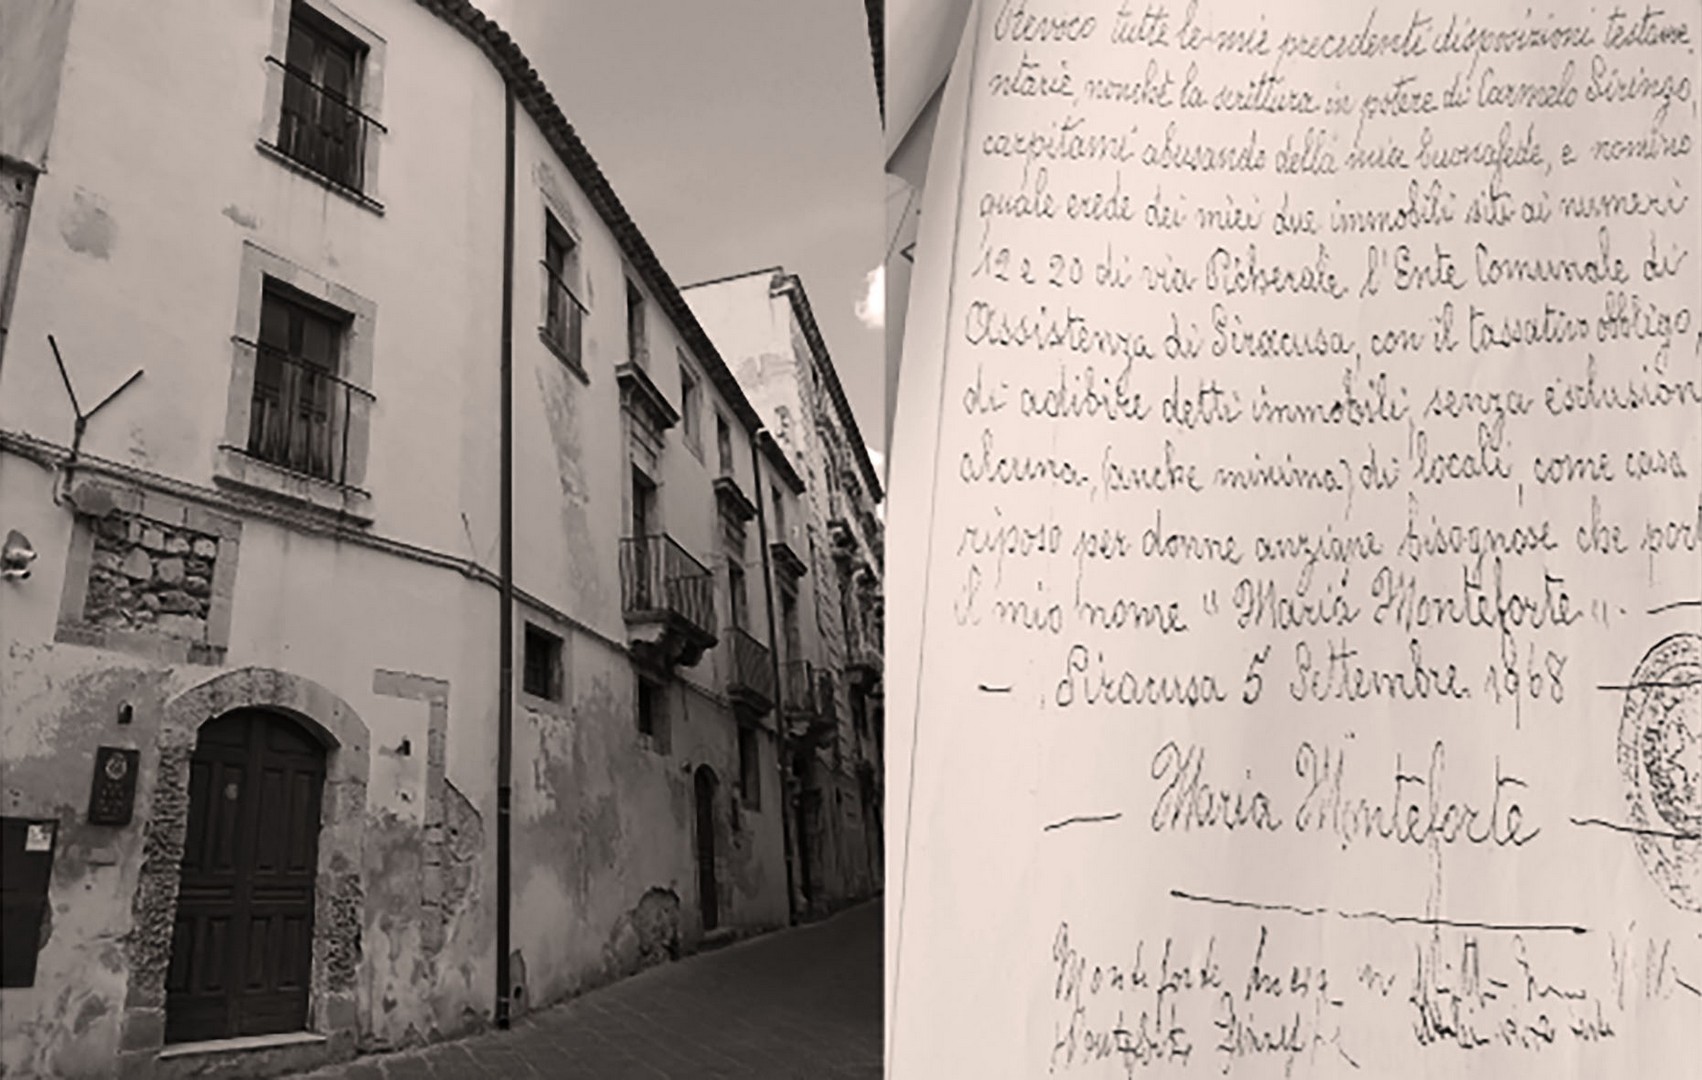 Revoco tutte le mie precedenti disposizioni testame
ntarie, nonchè la scrittura in potere di Carmelo Siringo,
carpitami abusando della mia buonafede, e nomino
quale erede dei miei due immobili siti ai numeri
12 e 20 di via Roberale l'Ente Comunale di
Assistenza di Siracusa, con il tassativo obbligo,
di adibire detti immobili, senza esclusion
alcuna, (anche minima) di locali, come casa
riposo per donne anziane bisognose che port
il mio nome "Maria Monteforte". —
— Siracusa 5 Settembre 1968 —
— Maria Monteforte —
Monteforte